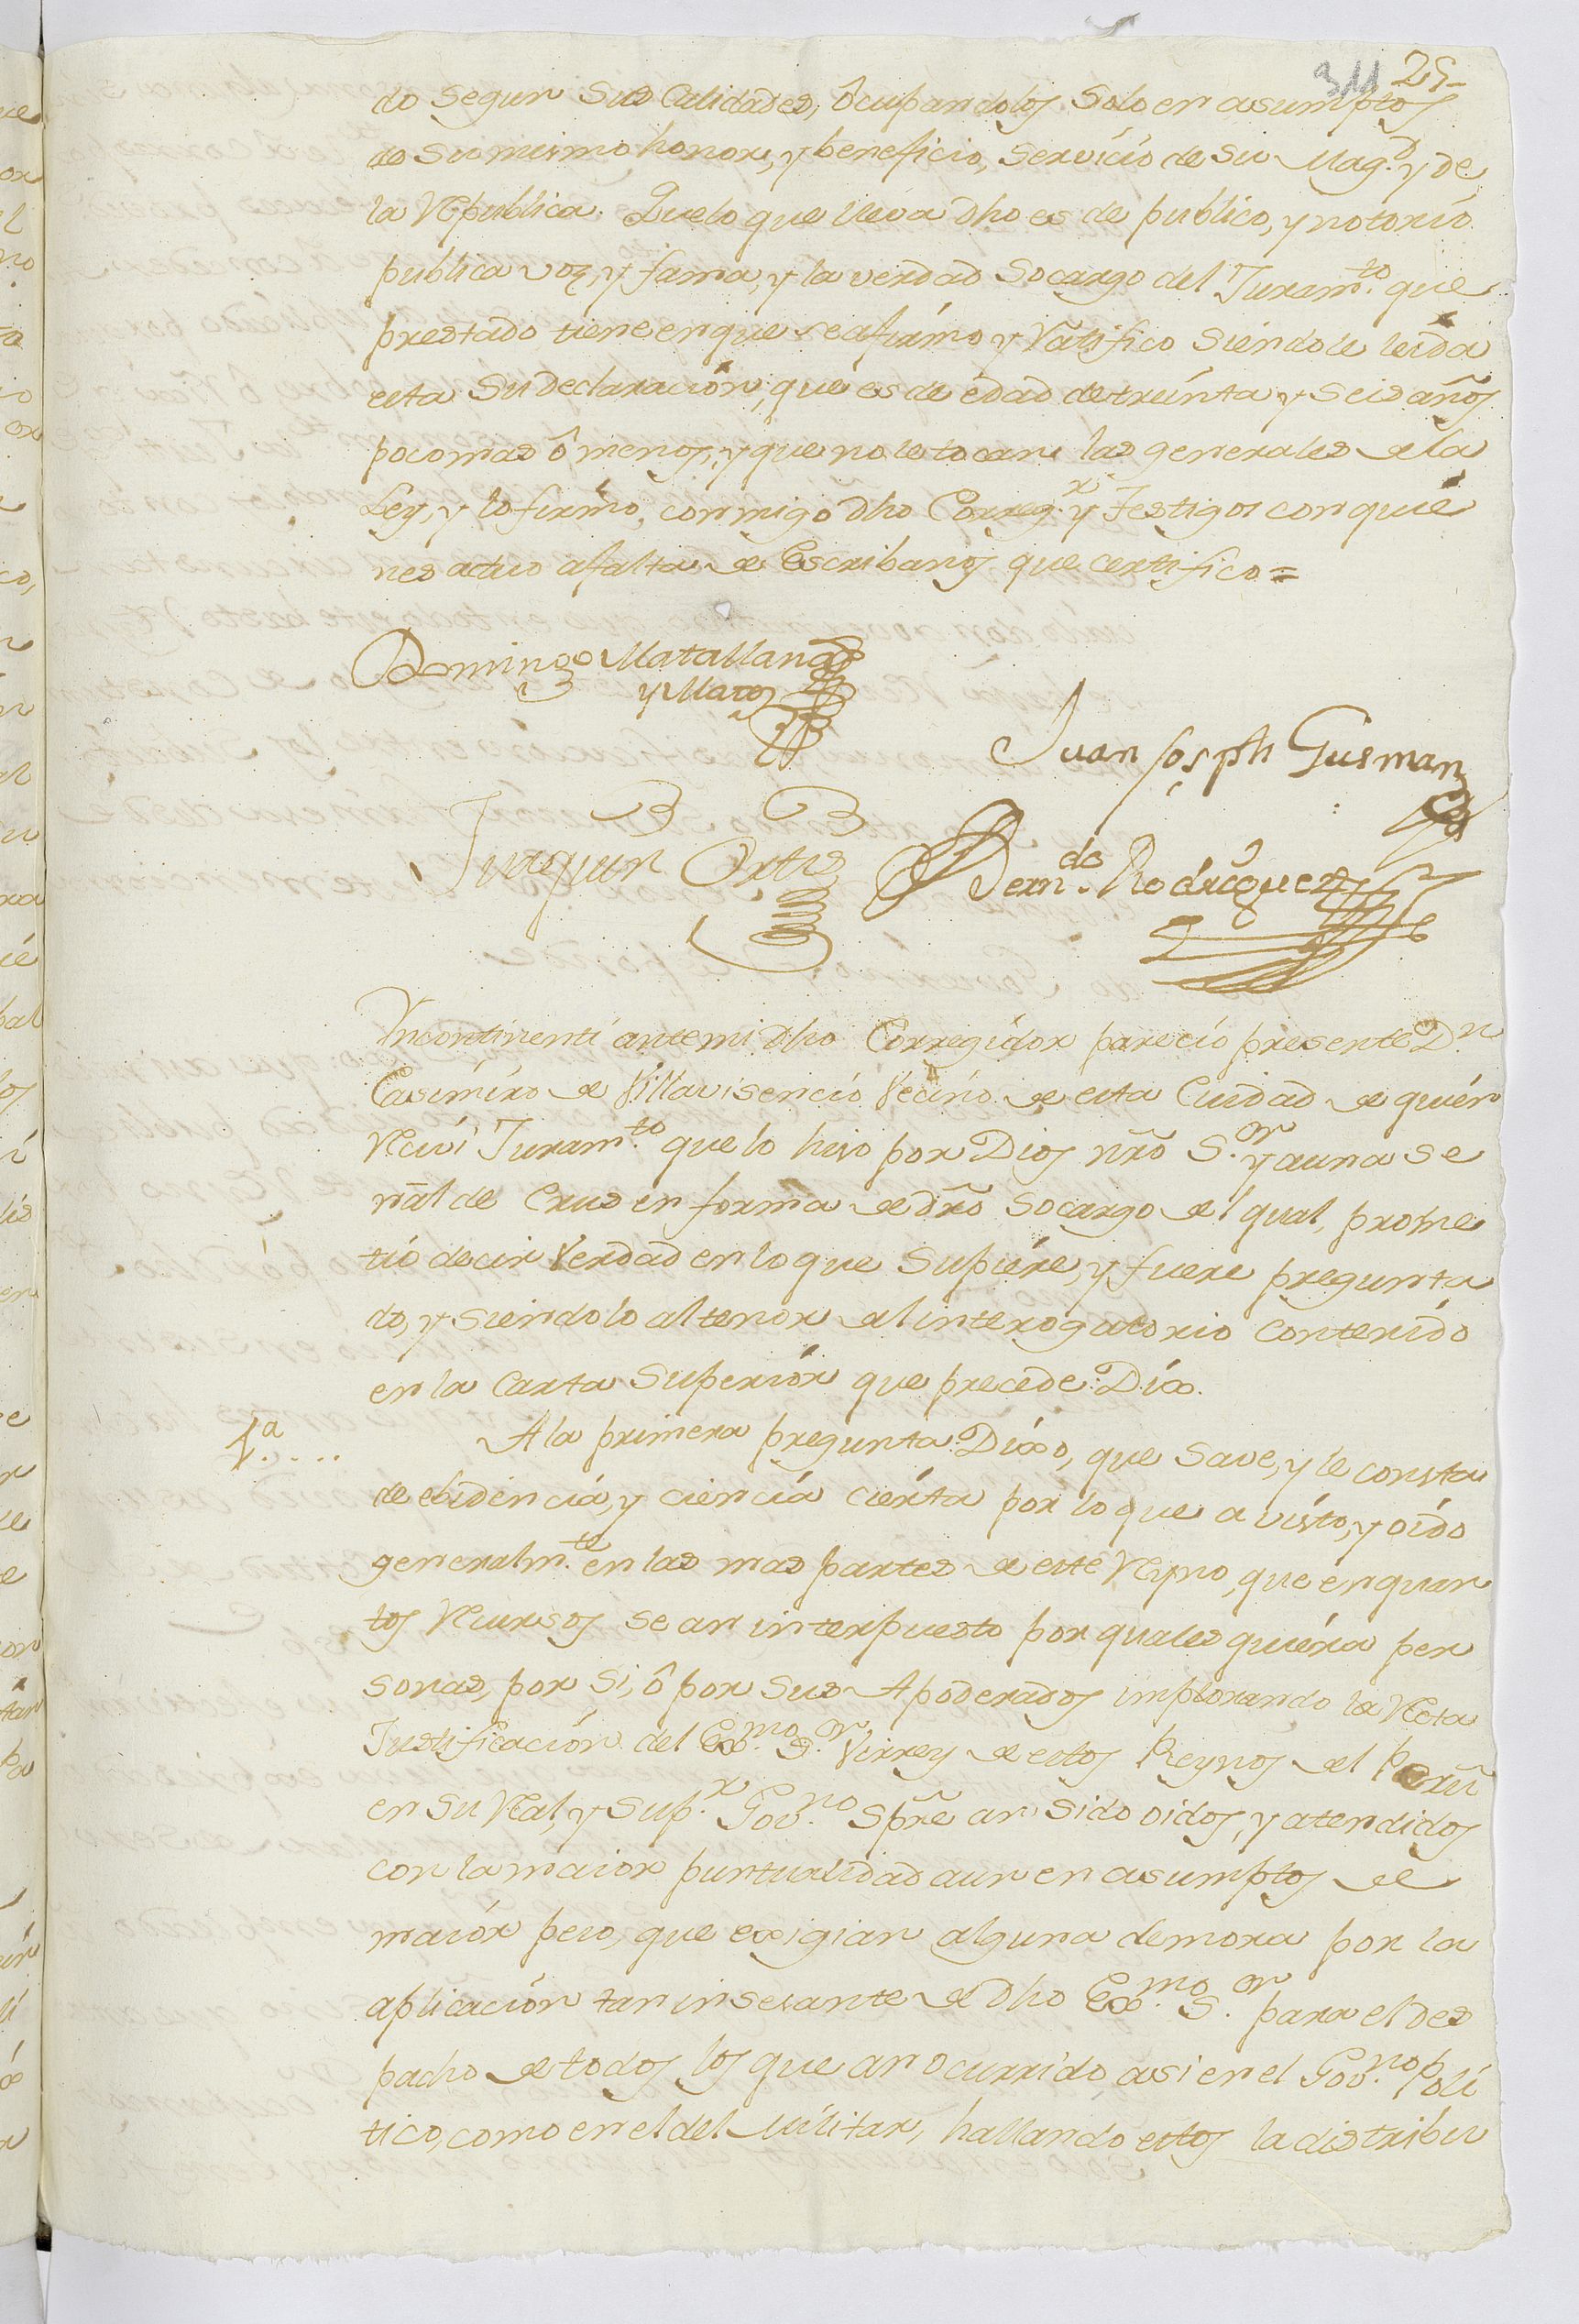 311 25
do segun sus Calidades, ôcupandolos Solo en asumptos
de su mismo honor, y beneficio, servicio de su Mag.d y de
la Republica. Que lo que lleva dho es de publico, y notorio
publica voz, y fama, y la verdad socargo del Juram.to que
prestado tiene en que se afirmo y Ratifico siendole leida
esta su declaracion, que es de edad de treinta y seis años
poco mas ô menos, y que no le tocan las generales de la
Ley, y lo firmo, conmigo dho Correg.r y Testigos con quie
nes actuo a falta de Escribanos que certifico=
Domingo Matallana
y Mato
Juan Joseph Gusman
Juaquin Ortis
Bern.do Rodriguez
Yncontinenti ante mi dho Corregidor parecio presente D.n
Casimiro de Villavisencio Vecino de esta Ciudad de quien
Recivi Juram.to que lo hiso por Dios nr̃o S.or y a una se
ñal de Crus en forma de dr̃o socargo del qual, prome
tió decir Verdad en lo que Supiere, y fuere pregunta
do, y siendolo al tenor del interogatorio contenido
en la Carta Superiór que precede: Dixo.
1.a.... A la primera pregunta: Dixo, que save, y le consta
de ebidencia, y ciencia cierta por lo que a visto, y oído
generalm.te en las mas partes de este Reyno, que en quan
tos Recursos se an interpuesto por quales quiéra per
sonas, por si, ô por sus Apoderados implorando la Recta
Justificación del Ex.mo S.or Virrey de estos Reynos del Perũ
en su Real, y Sup.r Gov.no Sp̃re an sido oidos, y atendidos
con la maior puntualidad aun en asumptos de
maiór peso, que exigian alguna demora por la
aplicación tan insesante de dho Ex.mo S.or para el des
pacho de todos los que an ocurrido asi en el Gov.no Poli
tico, como en el del Militar, hallando estos la distribu